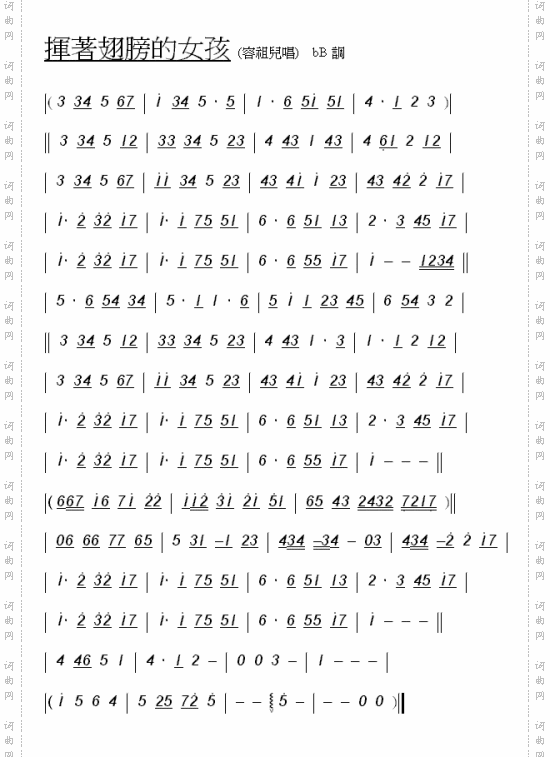 揮著翅膀的女孩 (容祖兒唱) bB 調
|( 3 34 5 67 | i 34 5 · 5 | 1 · 6 5i 51 | 4 · 1 2 3 )|
‖ 3 34 5 12 | 33 34 5 23 | 4 43 1 43 | 4 61 2 12 |
| 3 34 5 67 | ii 34 5 23 | 43 4i i 23 | 43 42̇ 2̇ i7 |
| i· 2̇ 3̇2̇ i7 | i· i 75 51 | 6 · 6 51 13 | 2 · 3 45 i7 |
| i· 2̇ 3̇2̇ i7 | i· i 75 51 | 6 · 6 55 i7 | i – – 1234 ‖
| 5 · 6 54 34 | 5 · 1 1 · 6 | 5 i 1 23 45 | 6 54 3 2 |
‖ 3 34 5 12 | 33 34 5 23 | 4 43 1 · 3 | 1 · 1 2 12 |
| 3 34 5 67 | ii 34 5 23 | 43 4i i 23 | 43 42̇ 2̇ i7 |
| i· 2̇ 3̇2̇ i7 | i· i 75 51 | 6 · 6 51 13 | 2 · 3 45 i7 |
| i· 2̇ 3̇2̇ i7 | i· i 75 51 | 6 · 6 55 i7 | i – – – ‖
|( 667 i6 7i 2̇2̇ | ii2̇ 3̇i 2̇i 5̇i | 65 43 2432 7217 )‖
| 06 66 77 65 | 5 31 –1 23 | 434 –34 – 03 | 434 –2̇ 2̇ i7 |
| i· 2̇ 3̇2̇ i7 | i· i 75 51 | 6 · 6 51 13 | 2 · 3 45 i7 |
| i· 2̇ 3̇2̇ i7 | i· i 75 51 | 6 · 6 55 i7 | i – – – ‖
| 4 46 5 1 | 4 · 1 2 – | 0 0 3 – | 1 – – – |
|( i 5 6 4 | 5 25 72̇ 5̇ | – – 5̇ – | – – 0 0 )‖